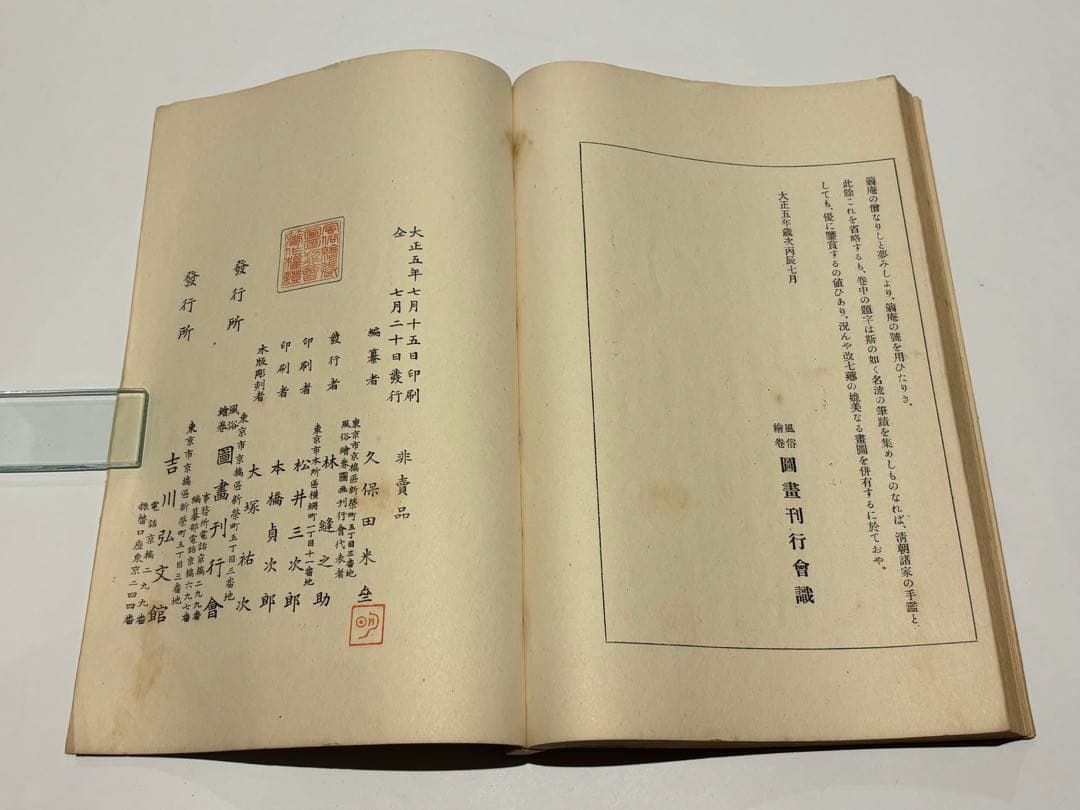 鶸庵の僧なりしと夢みしより、鶸庵の號を用ひたりき。
此餘これを省略するも、卷中の題字は斯の如く名流の筆蹟を集めしものなれば、清朝諸家の手鑑と
しても、優に鑒賞するの値ひあり、況んや改七薌の媲美なる畫圖を併有するに於ておや。
大正五年歲次丙辰七月
風俗繪卷 圖畫刊行會識
大正五年七月十五日印刷
仝 七月二十日發行
非賣品
編纂者 久保田米
東京市京橋區新榮町五丁目三番地
風俗繪卷圖画刊行會代表者
發行者 林縫之助
東京市本所區橫網町一丁目十一番地
印刷者 松井三次郎
印刷者 本橋貞次郎
木版彫刻者 大塚祐次
東京市京橋區新榮町五丁目三番地
發行所 風俗繪卷 圖畫刊行會
事務所電話京橋二九九番
編纂部電話京橋六九七番
東京市京橋區新榮町五丁目三番地
發行所 吉川弘文館
電話京橋二九九番
振替口座東京二四四番